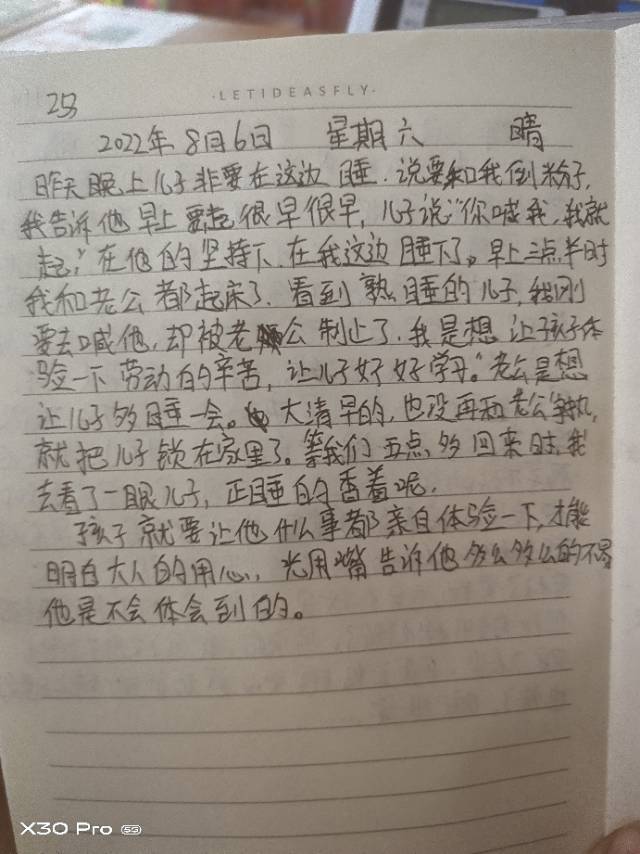 253
·LETIDEASFLY·
2022年8月6日 星期六 晴
昨天晚上儿子非要在这边睡.说要和我倒粉子,
我告诉他早上要起很早很早,儿子说“你喊我,我就
起,”在他的坚持下,在我这边睡下了。早上三点半时
我和老公都起床了.看到熟睡的儿子,我刚
要去喊他,却被老公制止了.我是想让孩子体
验一下劳动的辛苦,让儿子好好学习。“老公是想
让儿子多睡一会。大清早的,也没再和老公争执,
就把儿子锁在家里了。等我们五点多回来时,我
去看了一眼儿子,正睡的香着呢.
孩子就要让他什么事都亲自体验一下,才能
明白大人的用心,光用嘴告诉他多么多么的不易
他是不会体会到的。
X30 Pro 5G